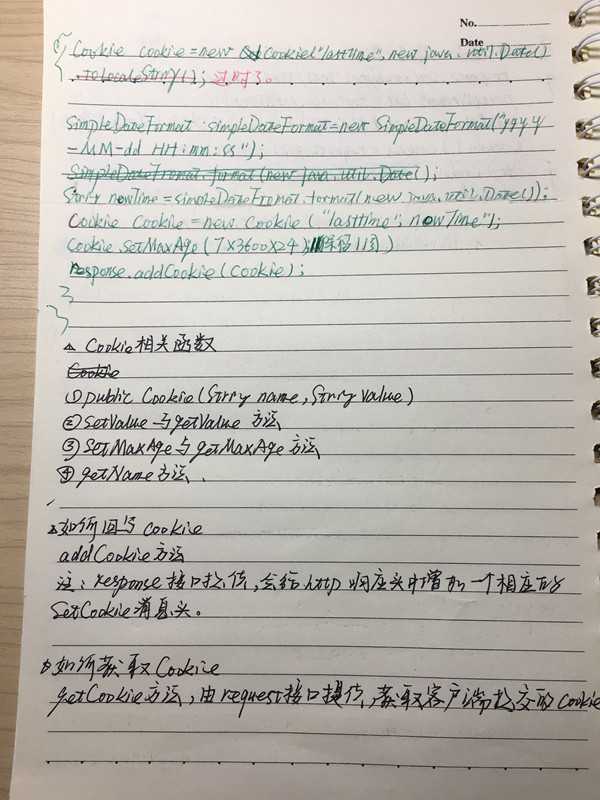 No.
Date
{ Cookie cookie=new Cookie("lastTime",new java.util.Date()
.toLocaleString(); 过时了。
SimpleDateFormat simpleDateFormat=new SimpleDateFormat("yyyy
-MM-dd HH:mm:ss");
SimpleDateFromat.format(new java.util.Date();
String nowTime=simpleDateFromat.format(new java.util.Date());
Cookie Cookie=new Cookie ("lasttime", nowTime");
Cookie.setMaxAge(7X3600X24);
response.addCookie(cookie);
}
}
Cookie相关函数
Cookie
①public Cookie(String name,String value)
②setValue与getValue方法
③SetMaxAge与getMaxAge方法
④getName方法.
如何回写cookie
addCookie方法
注:response接口提供,会给http响应头中增加一个相应的
SetCookie消息头。
如何获取Cookie
getCookie方法,由request接口提供,获取客户端提交的Cookie